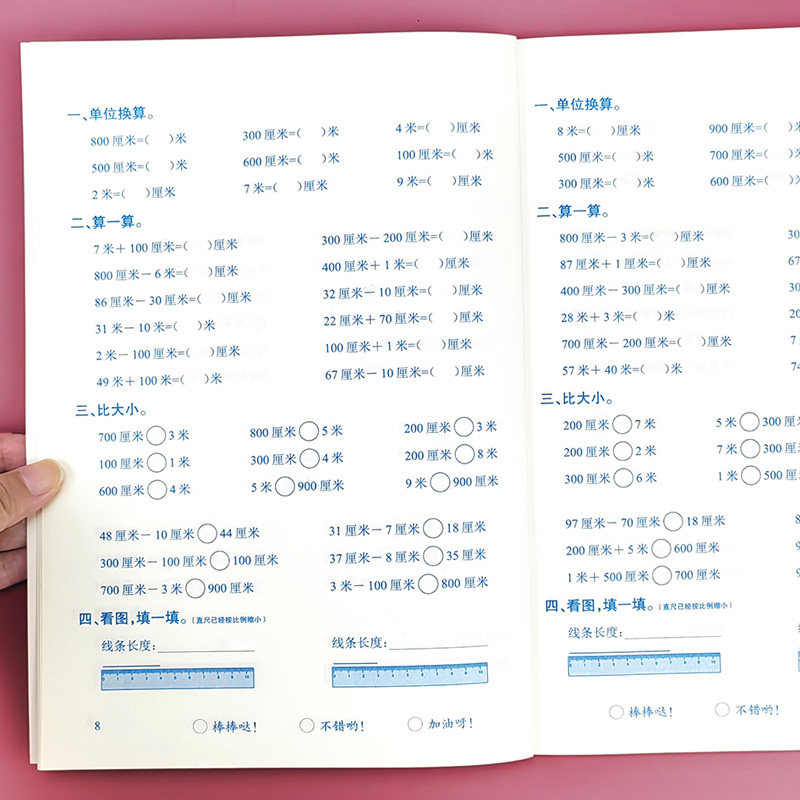 一、单位换算。
800 厘米=(　)米　300 厘米=(　)米　4 米=(　)厘米
500 厘米=(　)米　600 厘米=(　)米　100 厘米=(　)米
2 米=(　)厘米　7 米=(　)厘米　9 米=(　)厘米
二、算一算。
7 米＋100 厘米=(　)厘米　300 厘米－200 厘米=(　)厘米
800 厘米－6 米=(　)厘米　400 厘米＋1 米=(　)厘米
86 厘米－30 厘米=(　)厘米　32 厘米－10 厘米=(　)厘米
31 米－10 米=(　)米　22 厘米＋70 厘米=(　)厘米
2 米－100 厘米=(　)厘米　100 厘米＋1 米=(　)厘米
49 米＋100 米=(　)米　67 厘米－10 厘米=(　)厘米
三、比大小。
700 厘米○3 米　800 厘米○5 米　200 厘米○3 米
100 厘米○1 米　300 厘米○4 米　200 厘米○8 米
600 厘米○4 米　5 米○900 厘米　9 米○900 厘米
48 厘米－10 厘米○44 厘米　31 厘米－7 厘米○18 厘米
300 厘米－100 厘米○100 厘米　37 厘米－8 厘米○35 厘米
700 厘米－3 米○900 厘米　3 米－100 厘米○800 厘米
四、看图，填一填。(直尺已经按比例缩小)
线条长度：　线条长度：
0 1 2 3 4 5 6 7 8 9 10　0 1 2 3 4 5 6 7 8 9 10
8　○棒棒哒！　○不错哟！　○加油呀！
一、单位换算。
8 米=(　)厘米　900 厘米=(　)
500 厘米=(　)米　700 厘米=(　)
300 厘米=(　)米　600 厘米=(　)
二、算一算。
800 厘米－3 米=(　)厘米
87 厘米＋1 厘米=(　)厘米　67
400 厘米－300 厘米=(　)厘米
28 米＋3 米=(　)米
700 厘米－200 厘米=(　)厘米
57 米＋40 米=(　)米
三、比大小。
200 厘米○7 米　5 米○300 厘米
200 厘米○2 米　7 米○300 厘米
300 厘米○6 米　1 米○500 厘米
97 厘米－70 厘米○18 厘米
200 厘米＋5 米○600 厘米
1 米＋500 厘米○700 厘米
四、看图，填一填。(直尺已经按比例缩小)
线条长度：
0 1 2 3 4 5 6 7 8 9 10
○棒棒哒！　○不错哟！